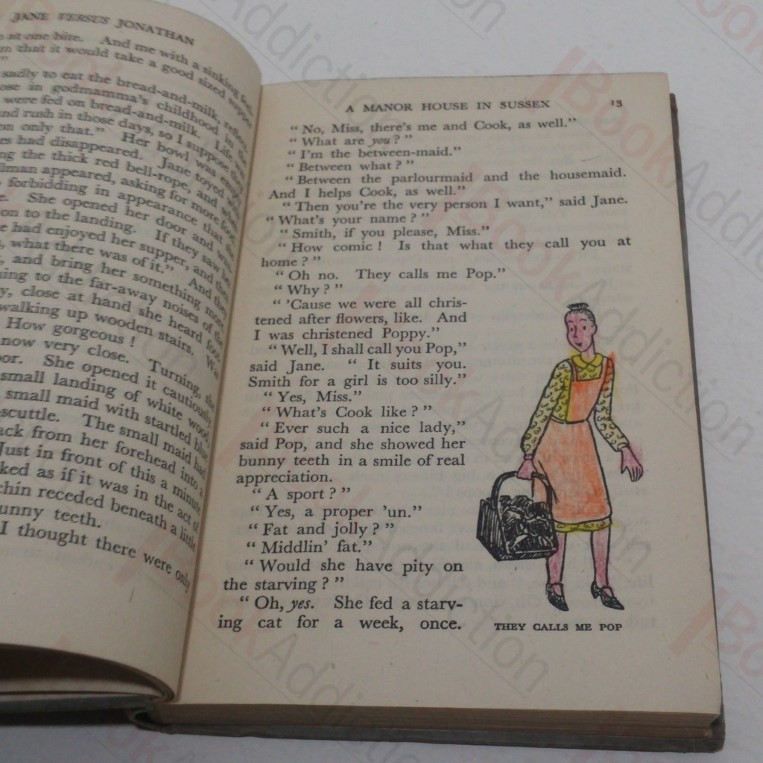 JANE VERSUS JONATHAN
at one bite. And me with a sinking
that it would take a good sized supper
sadly to eat the bread-and-milk,
in godmamma's childhood
were fed on bread-and-milk. Life
and rush in those days, so I suppose they
only that." Her bowl was empty
had disappeared. Jane toyed
the thick red bell-rope, and
appeared, asking for more food
forbidding in appearance that
She opened her door and
on to the landing. If they saw
had enjoyed her supper, and
what there was of it." And
and bring her something more
to the far-away noises of the
close at hand she heard
walking up wooden stairs.
How gorgeous!
now very close. Turning, she
She opened it cautiously
small landing of white wood
small maid with startled blue
scuttle. The small maid had
back from her forehead into a
Just in front of this a minute
as if it was in the act of
chin receded beneath a little
bunny teeth.
I thought there were only
A MANOR HOUSE IN SUSSEX 13
"No, Miss, there's me and Cook, as well."
"What are you?"
"I'm the between-maid."
"Between what?"
"Between the parlourmaid and the housemaid.
And I helps Cook, as well."
"Then you're the very person I want," said Jane.
"What's your name?"
"Smith, if you please, Miss."
"How comic! Is that what they call you at
home?"
"Oh no. They calls me Pop."
"Why?"
"'Cause we were all chris-
tened after flowers, like. And
I was christened Poppy."
"Well, I shall call you Pop,"
said Jane. "It suits you.
Smith for a girl is too silly."
"Yes, Miss."
"What's Cook like?"
"Ever such a nice lady,"
said Pop, and she showed her
bunny teeth in a smile of real
appreciation.
"A sport?"
"Yes, a proper 'un."
"Fat and jolly?"
"Middlin' fat."
"Would she have pity on
the starving?"
"Oh, yes. She fed a starv-
ing cat for a week, once.
THEY CALLS ME POP
BookAddiction